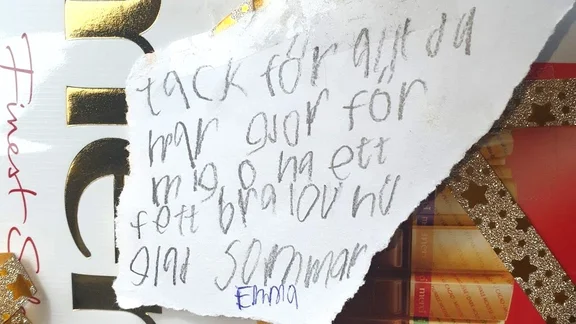 tack för allt du
har gjor för
mig o ha ett
fett bra lov nu
glad sommar
Emma
Finest S
mer